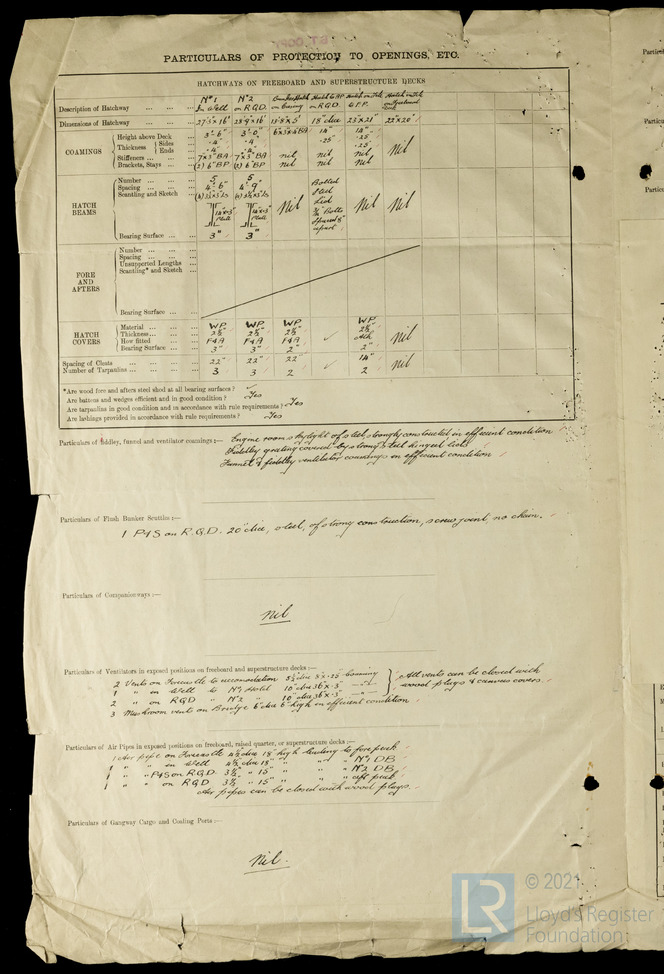 PARTICULARS OF PROTECTION TO OPENINGS, ETC.
HATCHWAYS ON FREEBOARD AND SUPERSTRUCTURE DECKS
Description of Hatchway ... ... ... Nº 1 In Well Nº 2 on R.Q.D. Bunker Hatch on Casing on R.Q.D.
Dimensions of Hatchway ... ... ... 27'3"×16' 28'9"×16' 13'8"×5' 18" dia 23"×21" 22"×20"
COAMINGS
Height above Deck 3'-6" 3'-0" 14" 14"
Thickness { Sides .4 .4 .25 .25
Ends .4 .4 .25
Stiffeners ... ... 7×3"BA 7×3"BA nil nil nil
Brackets, Stays ... (2) 6"BP (2) 6"BP nil nil nil
Nil
HATCH BEAMS
Number ... ... ... 5 5
Spacing ... ... ... 4'-6" 4'-9"
Scantling and Sketch
Plate Plate
Nil
Bolted
Steel
Lid
Nil Nil
Bearing Surface ... ... 3" 3"
FORE AND AFTERS
Number ... ... ...
Spacing ... ... ...
Unsupported Lengths ...
Scantling* and Sketch
Bearing Surface ... ...
HATCH COVERS
Material ... ... ... WP WP WP WP
Thickness... ... ... 2½" 2½" 2½" 2½"
How fitted ... ... F&A F&A F&A Ath
Bearing Surface ... 3" 3" 2" ✓ 2" Nil
Spacing of Cleats ... ... ... 22" 22" 22" 14"
Number of Tarpaulins ... ... ... 3 3 2 ✓ 2 Nil
*Are wood fore and afters steel shod at all bearing surfaces? ✓
Are battens and wedges efficient and in good condition? Yes
Are tarpaulins in good condition and in accordance with rule requirements? Yes
Are lashings provided in accordance with rule requirements? Yes
Particulars of fiddley, funnel and ventilator coamings:— Engine room skylight of steel strongly constructed in efficient condition
Fiddley grating covered by strong steel hinged lids
Funnel & fiddley ventilator coamings in efficient condition
Particulars of Flush Bunker Scuttles:—
1 P&S on R.Q.D. 20" dia, steel, of strong construction, screw joint, no chain.
Particulars of Companionways:—
Nil
Particulars of Ventilators in exposed positions on freeboard and superstructure decks:—
2 Vents on Forecastle to accomodation 5½" dia 8"×.25" Coaming
1 " in Well to Nº1 Hold 10" dia 36"×.3" —"—
2 " on RQD " Nº2 " 10" dia 36"×.3" —"—
All vents can be closed with
wood plugs & canvas covers.
3 Mushroom vents on Bridge 6" dia 6" high in efficient condition.
Particulars of Air Pipes in exposed positions on freeboard, raised quarter, or superstructure decks:—
1 Air pipe on Forecastle 4½" dia 18" high leading to fore peak
1 " " in Well 4½" dia 18" " " " Nº1 DB
1 " " P&S on R.Q.D. 3½" " 15" " " " Nº2 DB
1 " " on RQD 3½" " 15" " " " aft peak
Air pipes can be closed with wood plugs.
Particulars of Gangway Cargo and Coaling Ports:—
Nil.
© 2021
Lloyd's Register
Foundation
LR